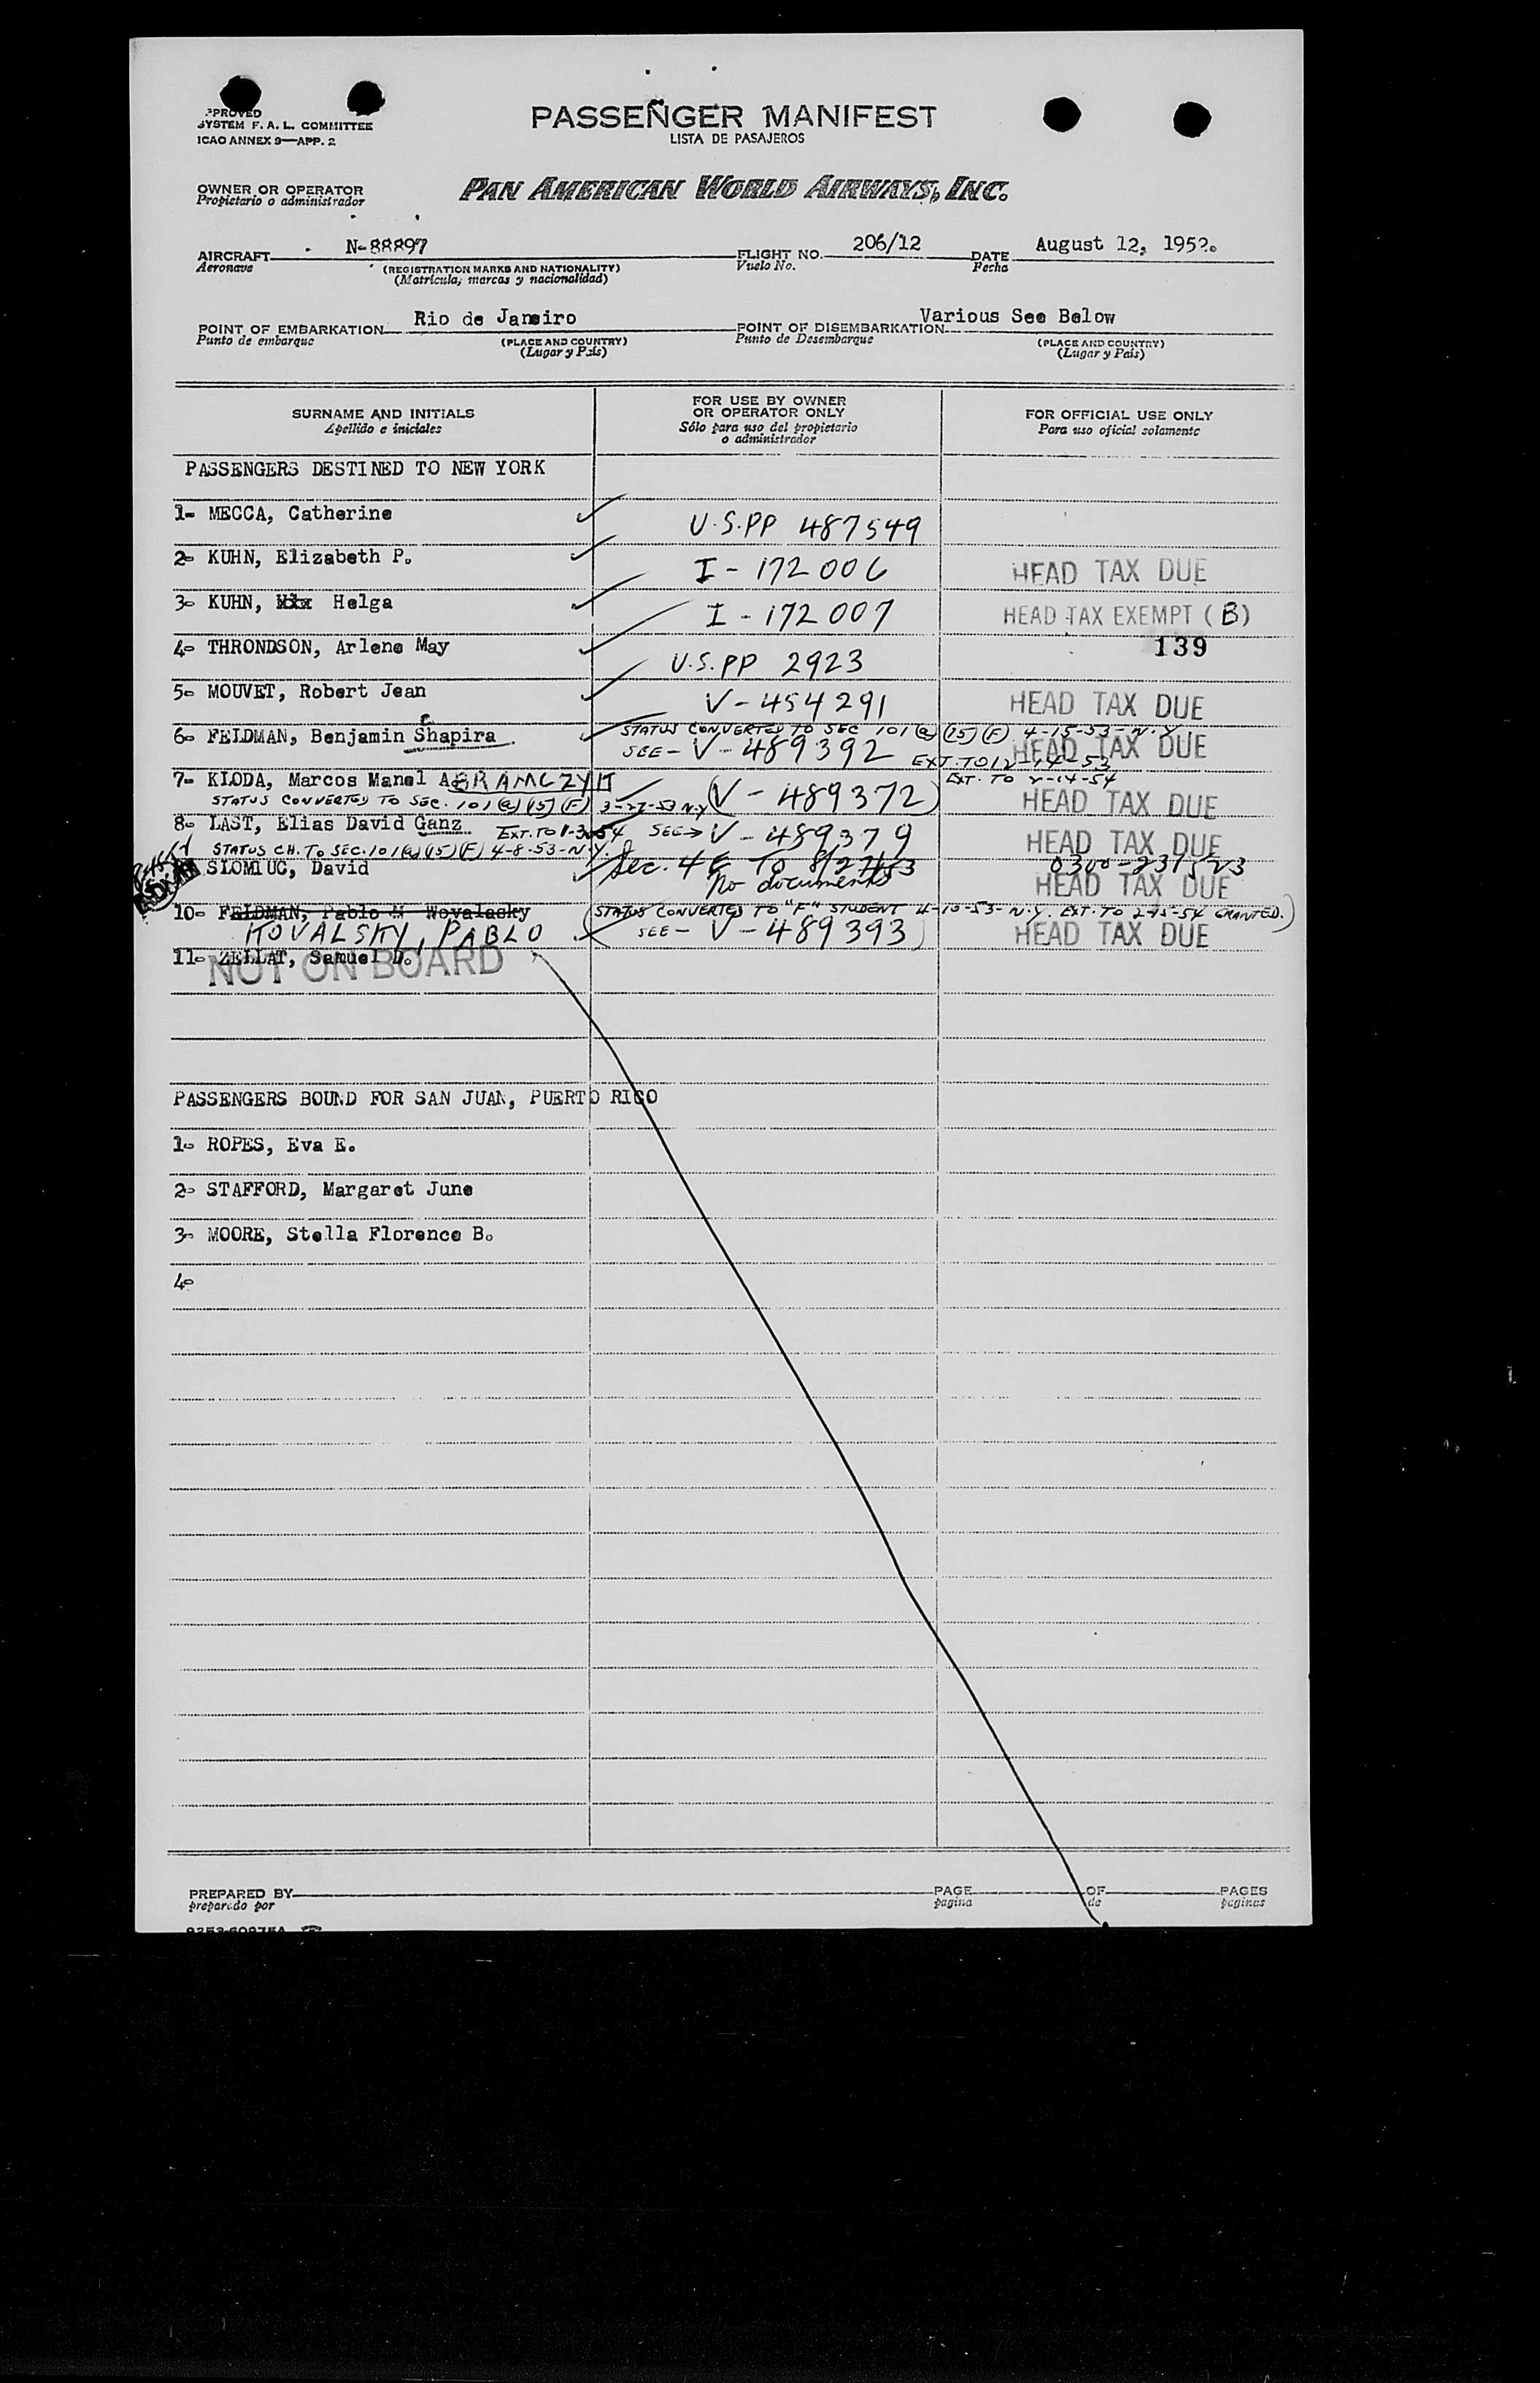 PROVED
SYSTEM F. A. L. COMMITTEE
ICAO ANNEX 9—APP. 2
PASSENGER MANIFEST
LISTA DE PASAJEROS
OWNER OR OPERATOR
Propietario o administrador
PAN AMERICAN WORLD AIRWAYS, INC.
AIRCRAFT N-88897 FLIGHT NO. 206/12 DATE August 12, 1952.
Aeronave (REGISTRATION MARKS AND NATIONALITY) Vuelo No. Fecha
(Matrícula, marcas y nacionalidad)
POINT OF EMBARKATION Rio de Janeiro POINT OF DISEMBARKATION Various See Below
Punto de embarque (PLACE AND COUNTRY) Punto de Desembarque (PLACE AND COUNTRY)
(Lugar y País) (Lugar y País)
SURNAME AND INITIALS FOR USE BY OWNER OR OPERATOR ONLY FOR OFFICIAL USE ONLY
Apellido e iniciales Sólo para uso del propietario o administrador Para uso oficial solamente
PASSENGERS DESTINED TO NEW YORK
1- MECCA, Catherine U.S.PP 487549
2- KUHN, Elizabeth P. I-172006 HEAD TAX DUE
3- KUHN, Helga I-172007 HEAD TAX EXEMPT (B)
139
4- THRONDSON, Arlene May U.S.PP 2923
5- MOUVET, Robert Jean V-454291 HEAD TAX DUE
STATUS CONVERTED TO SEC 101(a)(15)(F) 4-15-53-N.Y
6- FELDMAN, Benjamin Shapira SEE-V-489392 HEAD TAX DUE
EXT. TO 12-14-53
EXT. TO 2-14-54
7- KLODA, Marcos Manel ABRAMCZYK (V-489372) HEAD TAX DUE
STATUS CONVERTED TO SEC. 101(a)(15)(F) 3-27-53 N.Y
8- LAST, Elias David Ganz EXT. TO 1-3-54 SEE→V-489379 HEAD TAX DUE
STATUS CH. TO SEC. 101(a)(15)(F) 4-8-53-N.Y.
SLOMIUC, David Sec. 4E TO 8/27/53 0300-231523
No documents HEAD TAX DUE
10- FELDMAN, Pablo M Wovalasky (STATUS CONVERTED TO "F" STUDENT 4-15-53-N.Y. EXT. TO 2-15-54 GRANTED.)
KOVALSKY, PABLO SEE-V-489393 HEAD TAX DUE
11- ZELLAT, Samuel D.
NOT ON BOARD
PASSENGERS BOUND FOR SAN JUAN, PUERTO RICO
1- ROPES, Eva E.
2- STAFFORD, Margaret June
3- MOORE, Stella Florence B.
4-
PREPARED BY PAGE OF PAGES
preparado por pagina de paginas